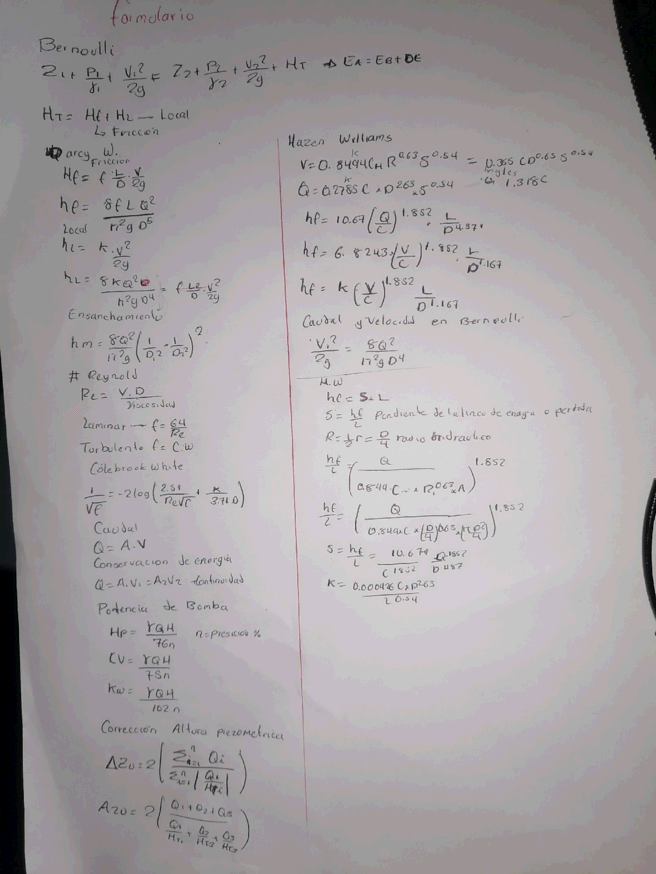 formulario
Bernoulli
Z1 + P1/γ1 + V1²/2g = Z2 + P2/γ2 + V2²/2g + HT → EA = EB + DE
HT = Hf + HL — Local
↳ Friccion
Darcy W.
Friccion
Hf = f · L/D · V/2g
hf = 8fLQ²/π²gD⁵
Local
hL = k · V²/2g
hL = 8KQ²/π²gD⁴ = f · LE/D · V²/2g
Ensanchamiento
hm = 8Q²/π²g (1/D1² - 1/D2²)²
# Reynold
Re = V.D/Viscosidad
Laminar → f = 64/Re
Turbulento f = CW
Colebrook White
1/√f = -2log(2.51/Re√f + K/3.71D)
Caudal
Q = A.V
Conservacion de energia
Q = A1V1 = A2V2 Continuidad
Potencia de Bomba
Hp = γQH/76n n = presicion %
CV = γQH/75n
Kw = γQH/102n
Corrección Altura piezometrica
ΔZ0 = 2(Σi=1ⁿ Qi / Σi=1ⁿ |Qi/Hfi|)
ΔZ0 = 2(Q1 + Q2 + Q3 / Q1/HT1 + Q2/HT2 + Q3/HT3)
Hazen Williams
V = 0.8494 CH R^0.63 S^0.54 = 0.355 CD^0.63 S^0.54
k
Ingles
Q = 0.2785 C * D^2.63 * S^0.54
1.318C
hf = 10.67 (Q/C)^1.852 · L/D^4.87
hf = 6.8243 (V/C)^1.852 · L/D^1.167
hf = k (V/C)^1.852 L/D^1.167
Caudal y Velocidad en Bernoulli
V1²/2g = 8Q²/π²gD⁴
H.W
hf = S * L
S = hf/L Pendiente de la linea de energia o perdida
R = 1/2 r = D/4 radio hidraulico
hf/L = (Q / 0.849 * C * R^0.63 * A)^1.852
hf/L = (Q / 0.849 * C * (D/4)^0.63 * (πD²/4))^1.852
S = hf/L = 10.679/C^1.852 · Q^1.852/D^4.87
K = 0.000426 C * D^2.63 / L^0.54